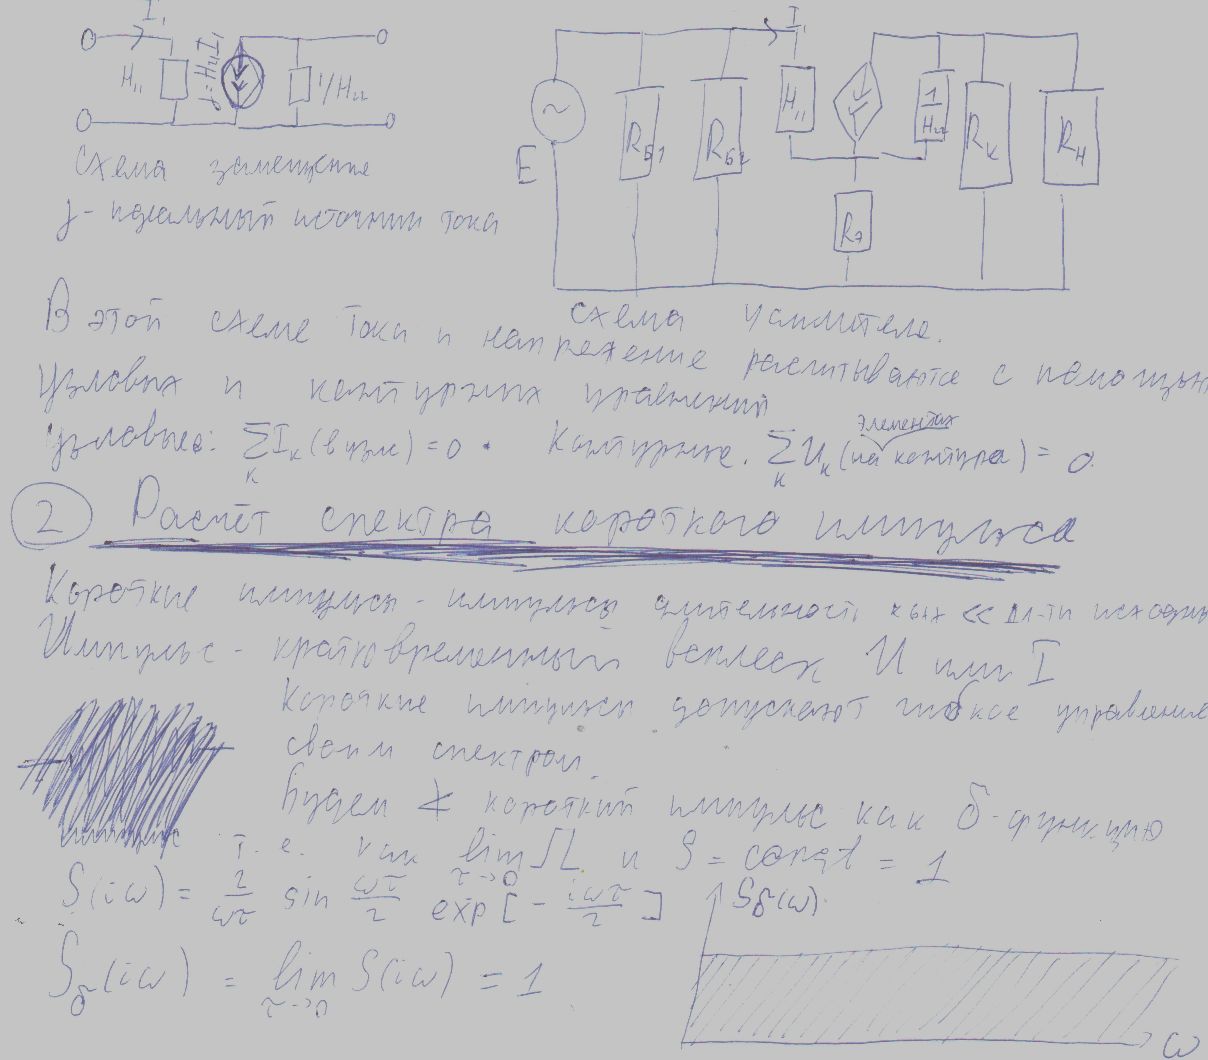 I₁
H₁₁
j=H₂₁I₁
1/H₂₂
Схема замещение
j - идеальный источник тока
I₁
E
~
R_Б1
R_Б2
H₁₁
1/H₂₂
R_К
R_Н
R_Э
схема усилителя.
В этой схеме токи и напрежение расчитываются с помощью
узловых и контурных уравнений
узловые: ∑_к I_к (в узле) = 0 . Контурные. ∑_к U_к (на элементах контура) = 0.
2 Расчёт спектра короткого импульса
Короткие импульсы - импульсы длительность кых << дл-ти исходны
Импульс - кратковременный всплеск U или I
Короткие импульсы допускают гибкое управление
своим спектром.
Будем короткий импульс как δ-функцию
т. е. как lim τ→0 и S = const = 1
S(iω) = 2/ωτ sin ωτ/2 exp[- iωτ/2]
S_δ(ω)
S_δ(iω) = lim τ→0 S(iω) = 1
ω